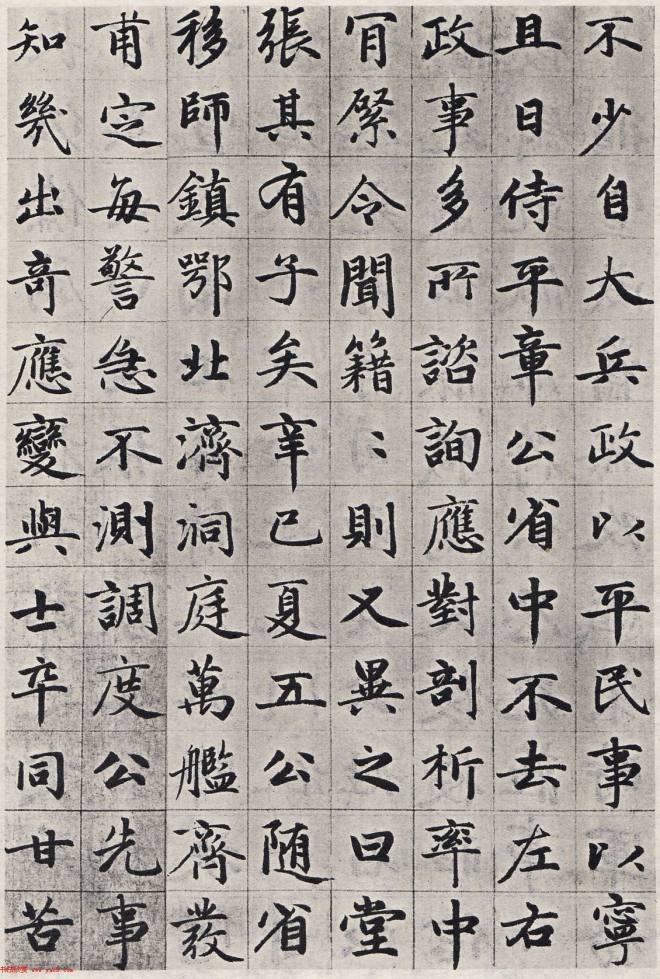 不少自大兵政以平民事以寧
且日侍平章公省中不去左右
政事多所諮詢應對剖析率中
肎綮令聞籍〻則又異之曰堂
張其有子矣辛巳夏五公随省
移師鎮鄂北濟洞庭萬艦齊發
甫定每警急不測調度公先事
知幾出奇應變與士卒同甘苦